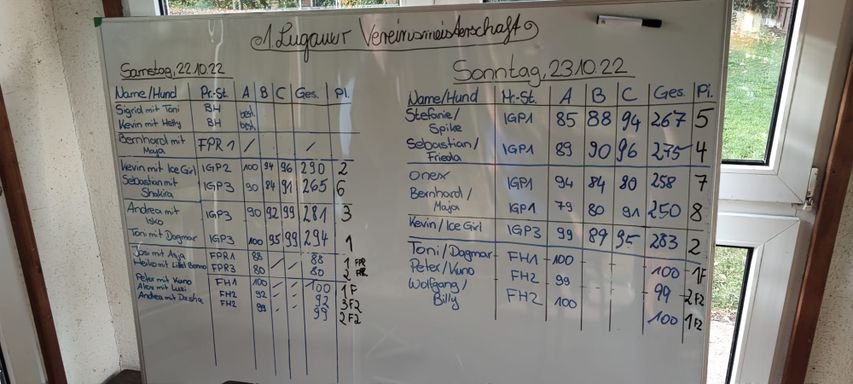 1 Lugauer Vereinsmeisterschaft
Samstag, 22.10.22
Name/Hund Pr.-St. A B C Ges. Pl.
Sigrid mit Toni BH best.
Kevin mit Hetty BH best.
Bernhard mit Maja FPR 1 / / /
Kevin mit Ice Girl IGP2 100 94 96 290 2
Sebastian mit Shakira IGP3 90 84 91 265 6
Andrea mit Isko IGP3 90 92 99 281 3
Toni mit Dagmar IGP3 100 95 99 294 1
mit Anja FPR1 88 / / 88 1 FPR
Heiko mit Benno FPR3 80 / / 80 2 FPR
Peter mit Kuno FH1 100 - - 100 1F
mit FH2 92 - - 92 3F2
Andrea mit Dasha FH2 99 - - 99 2F2
Sonntag, 23.10.22
Name/Hund Pr.-St. A B C Ges. Pl.
Stefanie/
Spike IGP1 85 88 94 267 5
Sebastian/
Frieda IGP1 89 90 96 275 4
Onex IGP1 94 84 80 258 7
Bernhard/
Maja IGP1 79 80 91 250 8
Kevin/Ice Girl IGP3 99 89 95 283 2
Toni/Dagmar FH1 100 - - 100 1F
Peter/Kuno FH2 99 - - 99 2F2
Wolfgang/
Billy FH2 100 - - 100 1F2